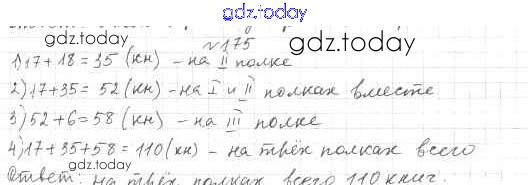 gdz.today
gdz.today
№175
gdz.today
1) 17+18=35 (кн) - на II полке
2) 17+35= 52 (кн) - на I и II полках вместе
3) 52+6=58 (кн) - на III полке
4) 17+35+58=110 (кн) - на трёх полках всего
gdz.today
Ответ: на трёх полках всего 110 книг.